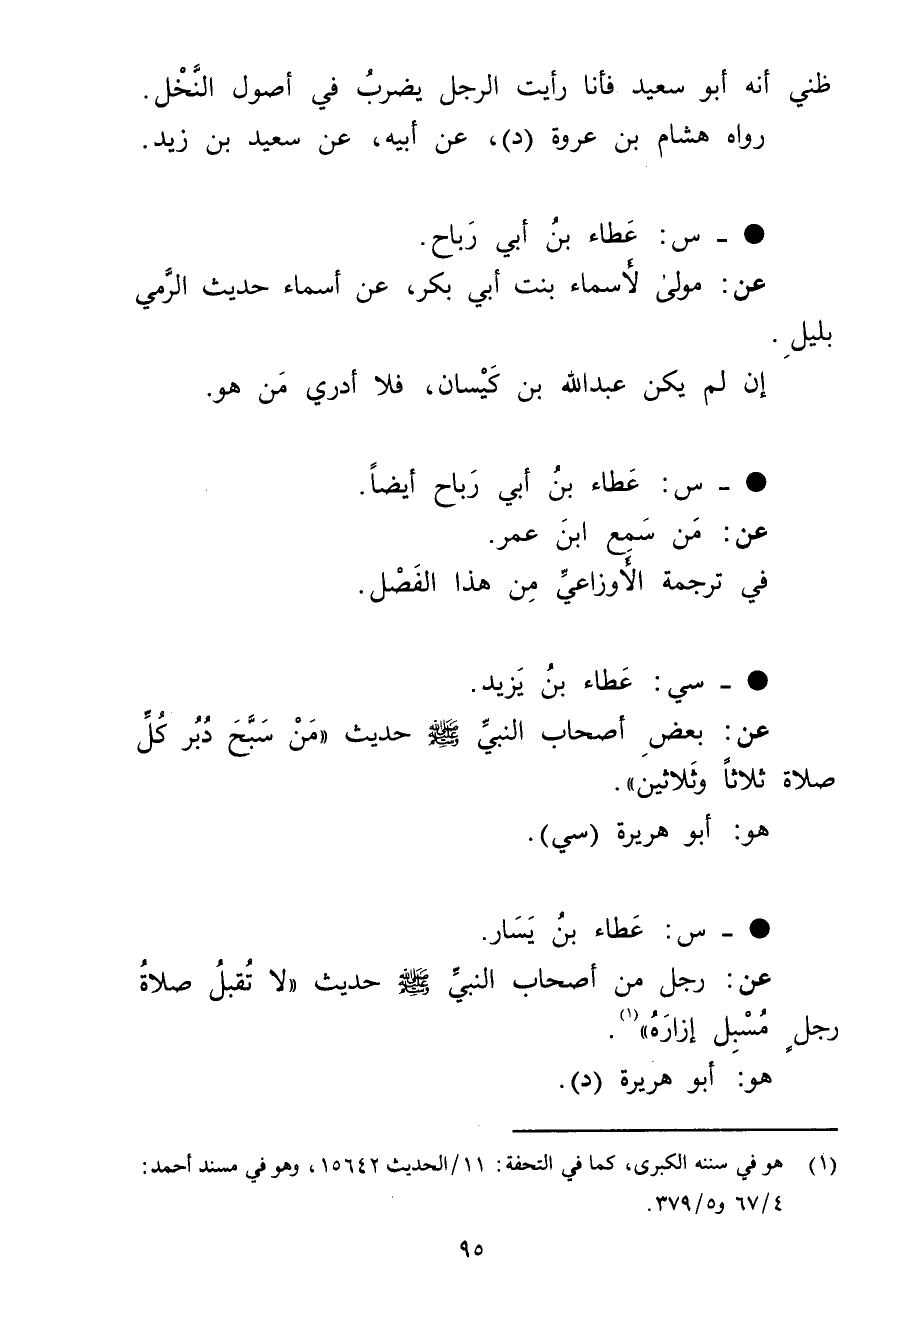 ظني أنه أبو سعيد فأنا رأيت الرجل يضربُ في أصول النَّخْل.
رواه هشام بن عروة (د)، عن أبيه، عن سعيد بن زيد.
● ـ س: عَطاء بنُ أبي رَباح.
عن: مولىٰ لأَسماء بنت أبي بكر، عن أسماء حديث الرَّمي
بليلٍ.
إن لم يكن عبدالله بن كَيْسان، فلا أدري مَن هو.
● ـ س: عَطاء بنُ أبي رَباح أيضاً.
عن: مَن سَمِع ابنَ عمر.
في ترجمة الأَوزاعيِّ مِن هذا الفَصْل.
● ـ سي: عَطاء بنُ يَزيد.
عن: بعضِ أصحاب النبيِّ ﷺ حديث «مَنْ سَبَّحَ دُبُر كُلِّ
صلاة ثلاثاً وثَلاثين».
هو: أبو هريرة (سي).
● ـ س: عَطاء بنُ يَسَار.
عن: رجل من أصحاب النبيِّ ﷺ حديث «لا تُقبلُ صلاةُ
رجلٍ مُسْبِل إزارَهُ»(١).
هو: أبو هريرة (د).
(١) هو في سننه الكبرى، كما في التحفة: ١١/الحديث ١٥٦٤٢، وهو في مسند أحمد:
٦٧/٤ و٣٧٩/٥.
٩٥